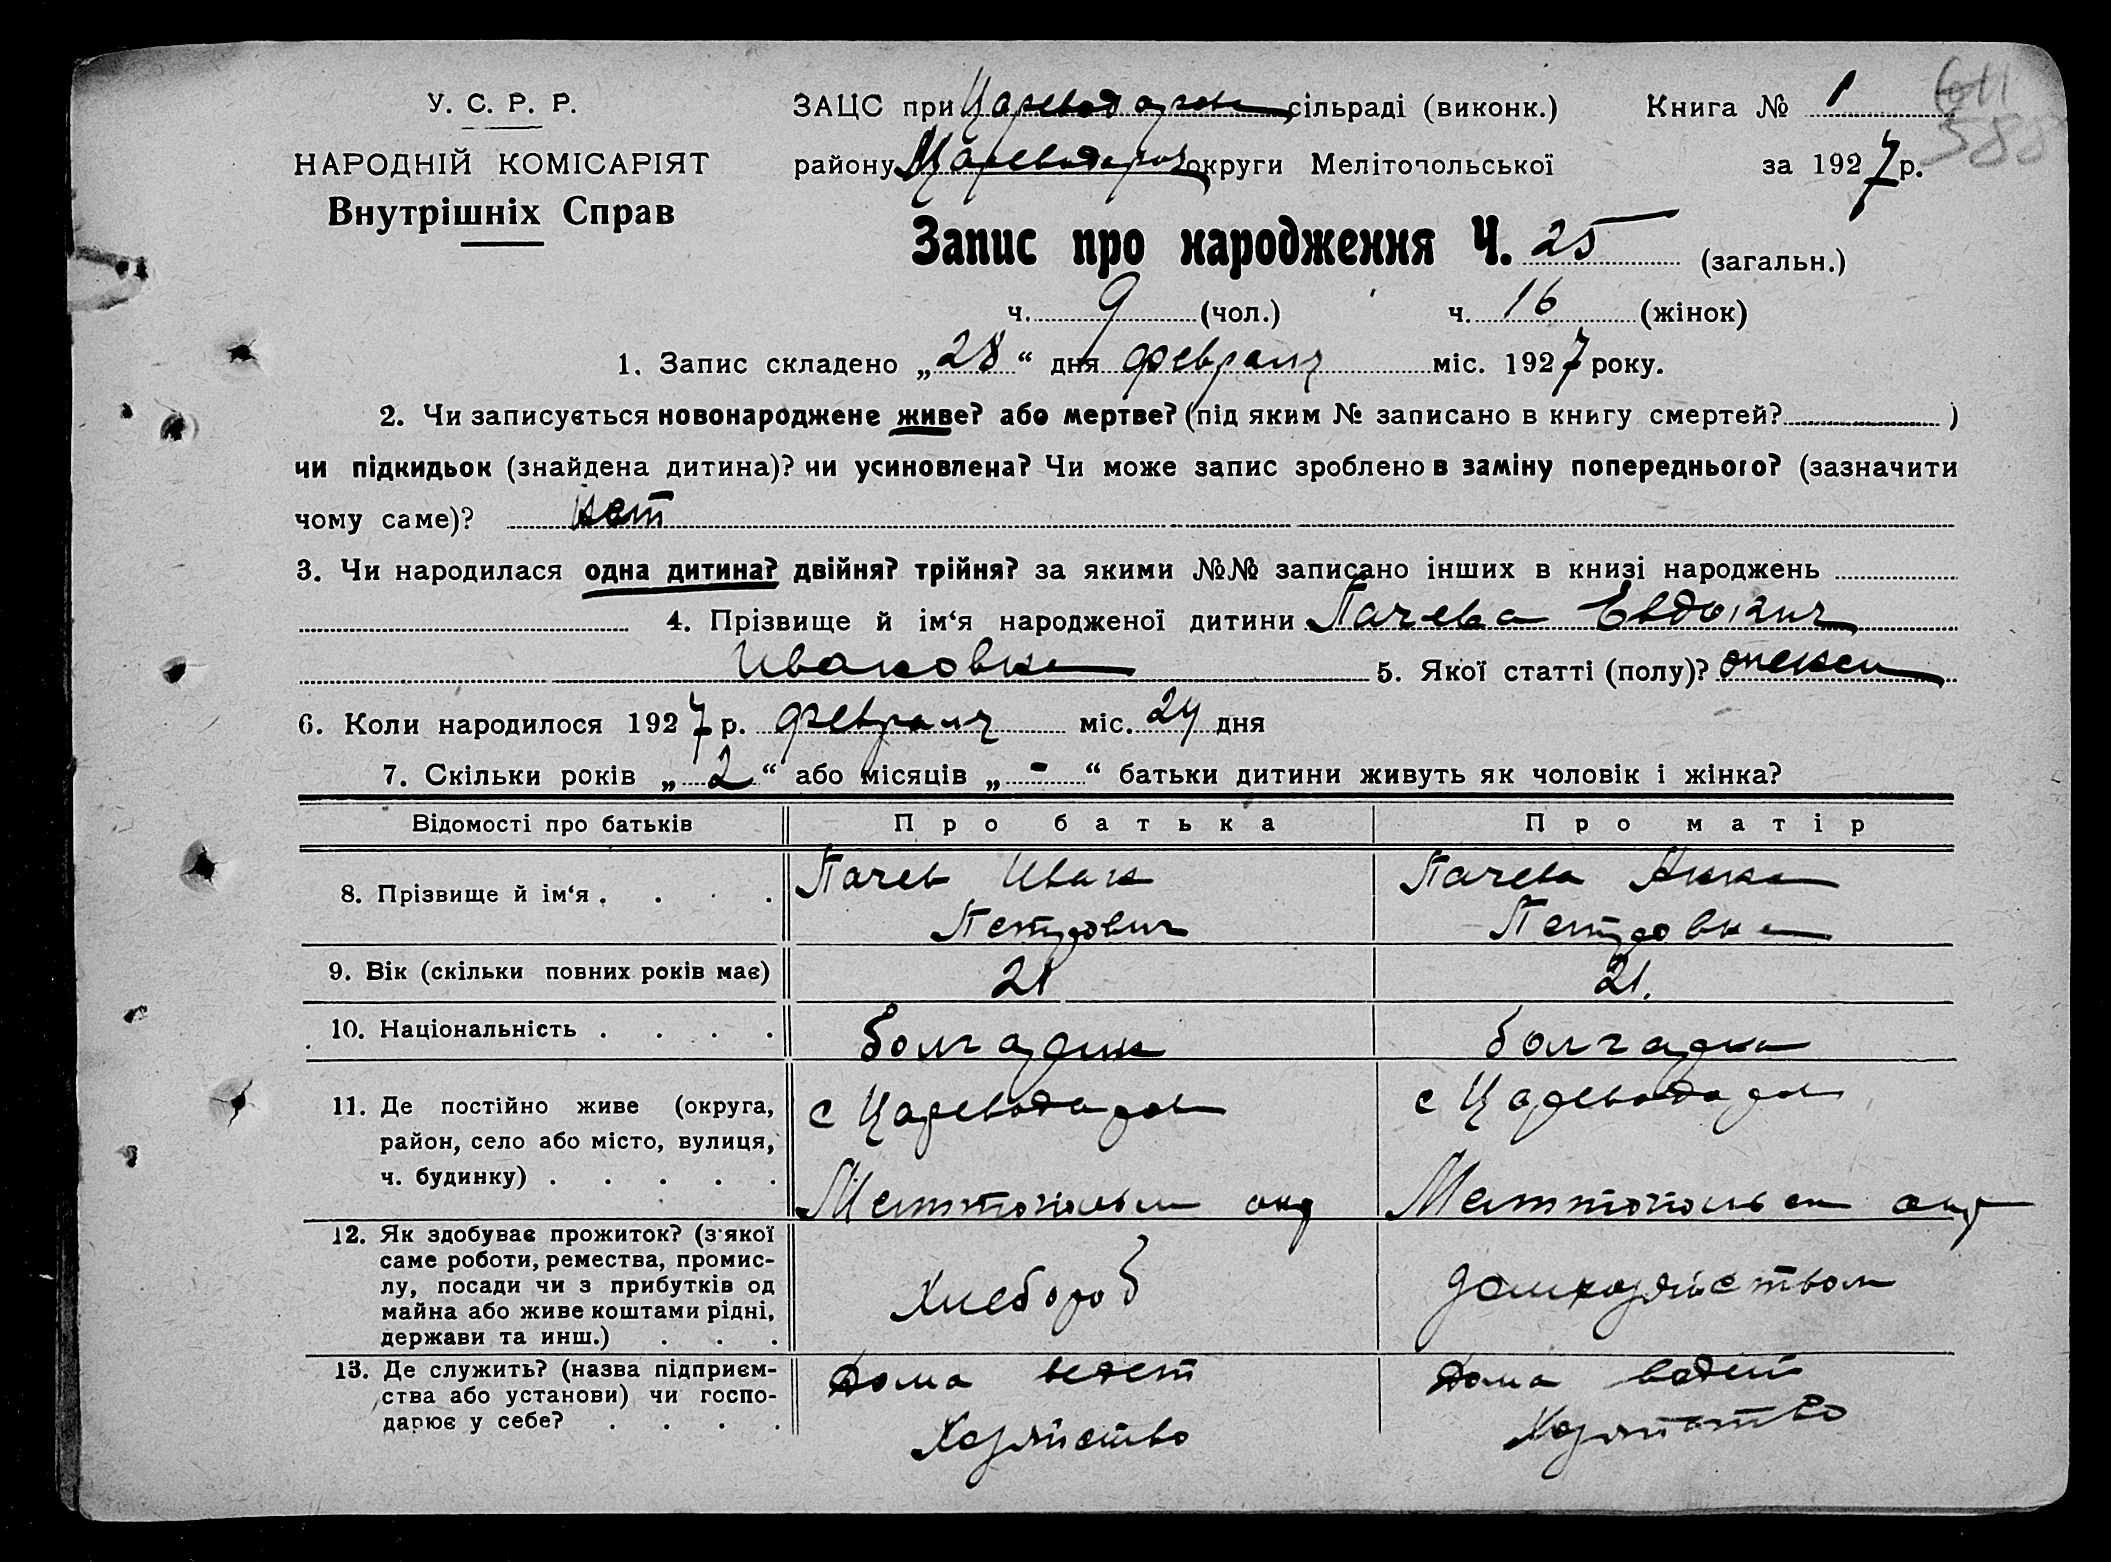 У. С. Р. Р.
НАРОДНІЙ КОМІСАРІЯТ
Внутрішніх Справ
ЗАЦС при Цареводаров сільраді (виконк.) Книга № 1
району Цареводаров округи Мелітопольської за 1927 р.
588
Запис про народження Ч. 25 (загальн.)
ч. 9 (чол.) ч. 16 (жінок)
1. Запис складено „28“ дня февраля міс. 1927 року.
2. Чи записується новонароджене живе? або мертве? (під яким № записано в книгу смертей? )
чи підкидьок (знайдена дитина)? чи усиновлена? Чи може запис зроблено в заміну попереднього? (зазначити
чому саме)? нет
3. Чи народилася одна дитина? двійня? трійня? за якими №№ записано інших в книзі народжень
4. Прізвище й ім‘я народженої дитини Пачева Евдокия
Ивановна 5. Якої статті (полу)? женск
6. Коли народилося 1927 р. февраля міс. 24 дня
7. Скільки років „2“ або місяців „-“ батьки дитини живуть як чоловік і жінка?
Відомості про батьків Про батька Про матір
8. Прізвище й ім‘я . . . . Пачев Иван Петрович Пачева Анна Петровна
9. Вік (скільки повних років має) 21 21.
10. Національність . . . . болгарин болгарка
11. Де постійно живе (округа,
район, село або місто, вулиця,
ч. будинку) . . . . .
с Цареводаров
Мелитопольск окр
с Цареводаров
Мелитопольск окр
12. Як здобуває прожиток? (з'якої
саме роботи, ремества, промис-
лу, посади чи з прибутків од
майна або живе коштами рідні,
держави та инш.) . . .
Хлебороб
домхозяйством
13. Де служить? (назва підприєм-
ства або установи) чи госпо-
дарює у себе? . . . .
дома ведет
Хозяйство
дома ведет
Хозяйство